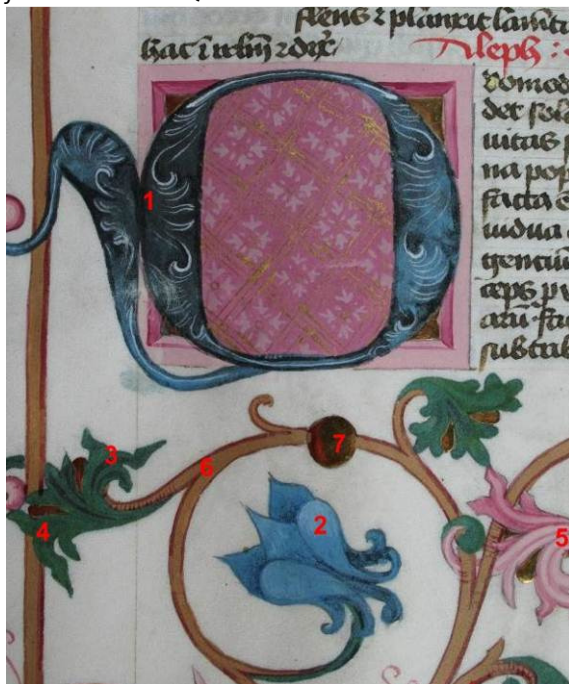 flens ⁊ planxit lam̄ta
hac ī irlm̄ ⁊ dix̄ Aleph :
vomod
det sola
uitas p
1
na pop
facta e
uidua
gentiū
ceps pv
arū fa
sub trib
7
3
6
2
4
5